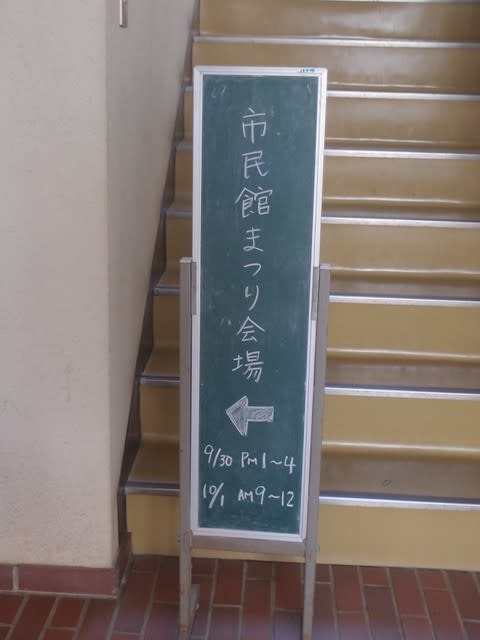 市民館まつり会場
9/30 PM1〜4
10/1 AM9〜12